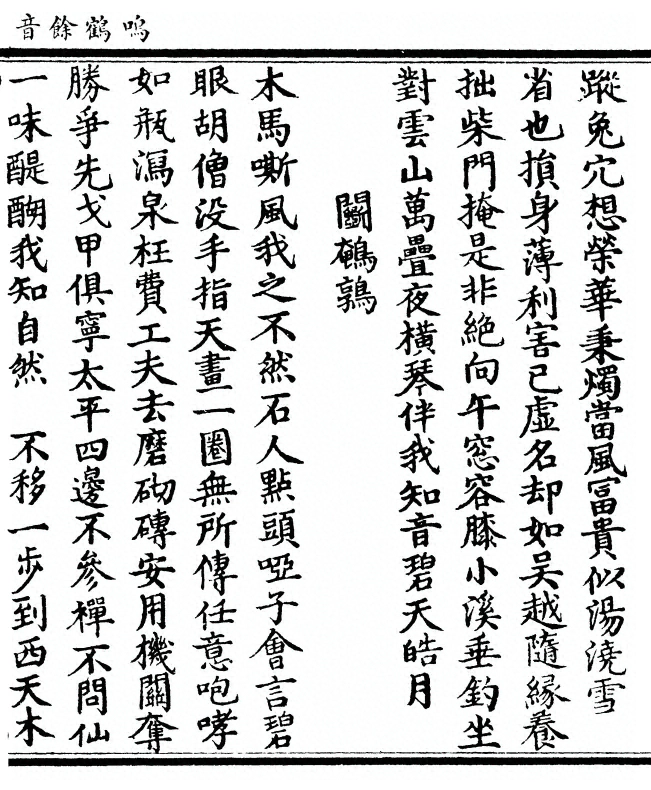 鳴鶴餘音
蹤兔穴想榮華秉燭當風冨貴似湯澆雪
省也損身薄利害已虛名却如吳越隨緣養
拙柴門掩是非絶向午窓容膝小溪垂釣坐
對雲山萬疊夜橫琴伴我知音碧天皓月
鬭鵪鶉
木馬嘶風我之不然石人點頭啞子會言碧
眼胡僧没手指天畫一圈無所傳任意咆哮
如瓶瀉泉枉費工夫去磨砌磚安用機關奪
勝爭先戈甲俱寧太平四邊不參禪不問仙
一味醍醐我知自然　不移一步到西天木